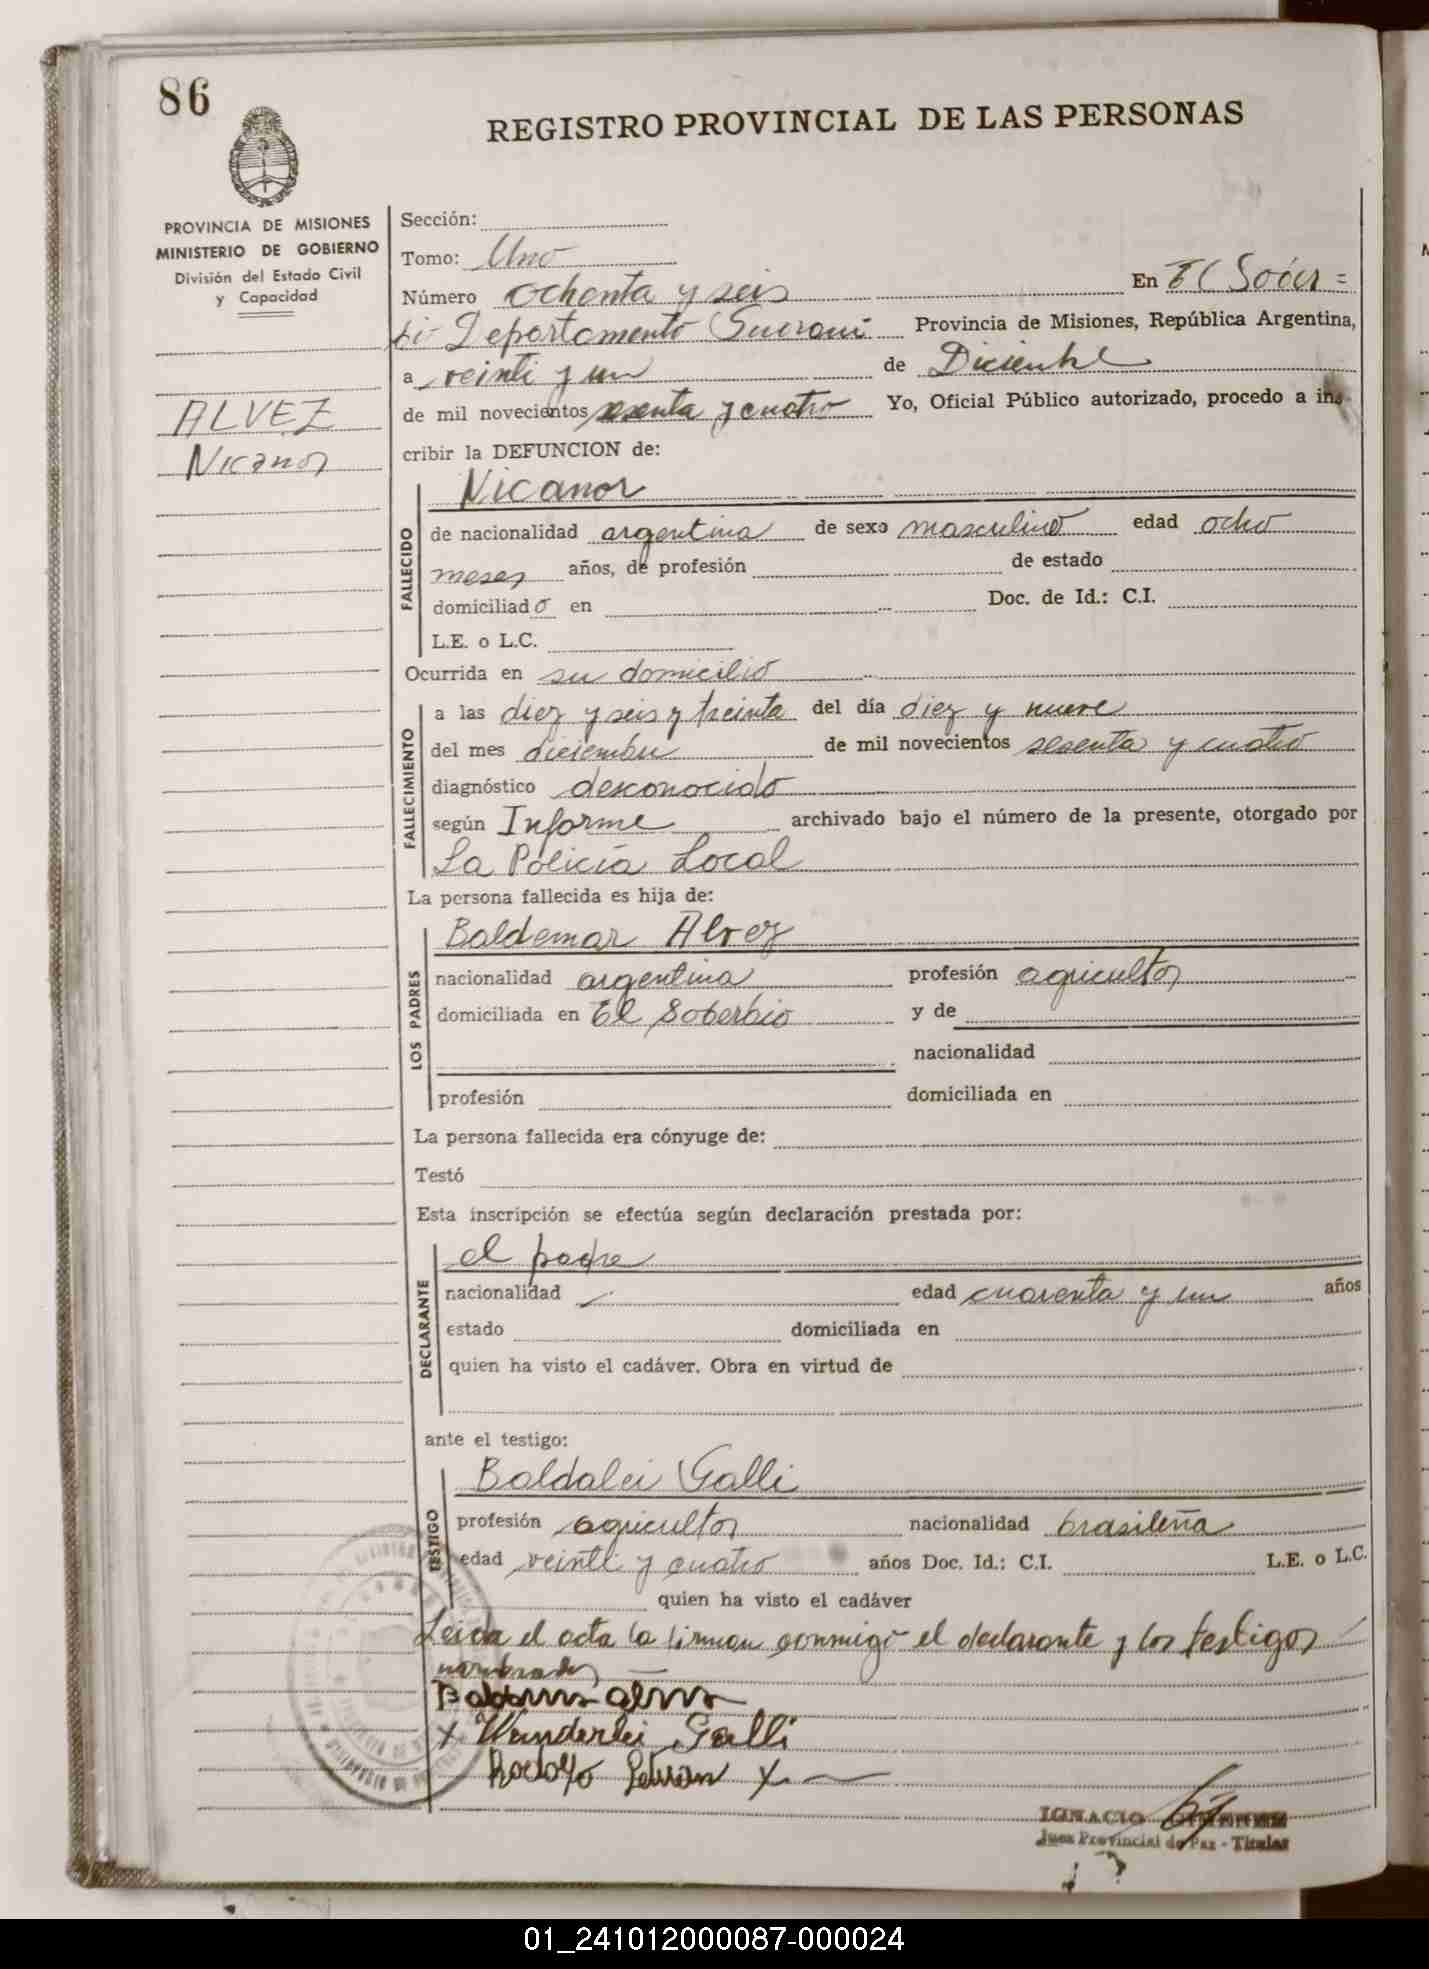 86
REGISTRO PROVINCIAL DE LAS PERSONAS
PROVINCIA DE MISIONES
MINISTERIO DE GOBIERNO
División del Estado Civil
y Capacidad
ALVEZ
Nicanor
Sección:
Tomo: Uno
Número ochenta y seis En El Sober=
bio Departamento Guaraní Provincia de Misiones, República Argentina,
a veinti y un de Diciembre
de mil novecientos sesenta y cuatro Yo, Oficial Público autorizado, procedo a ins-
cribir la DEFUNCION de:
Nicanor
FALLECIDO
de nacionalidad argentina de sexo masculino edad ocho
meses años, de profesión de estado
domiciliado en Doc. de Id.: C.I.
L.E. o L.C.
Ocurrida en su domicilio
FALLECIMIENTO
a las diez y seis y treinta del día diez y nueve
del mes diciembre de mil novecientos sesenta y cuatro
diagnóstico desconocido
según Informe archivado bajo el número de la presente, otorgado por
La Policía Local
La persona fallecida es hija de:
LOS PADRES
Baldemar Alvez
nacionalidad argentina profesión agricultor
domiciliada en El Soberbio y de
nacionalidad
profesión domiciliada en
La persona fallecida era cónyuge de:
Testó
Esta inscripción se efectúa según declaración prestada por:
DECLARANTE
el padre
nacionalidad edad cuarenta y un años
estado domiciliada en
quien ha visto el cadáver. Obra en virtud de
ante el testigo:
TESTIGO
Baldalei Galli
profesión agricultor nacionalidad brasileña
edad veinti y cuatro años Doc. Id.: C.I. L.E. o L.C.
quien ha visto el cadáver
Leida el acta la firman conmigo el declarante y los testigos
nombrados
x Wanderlei Galli
Rodolfo x
IGNACIO
Juez Provincial de Paz - Titular
01_241012000087-000024